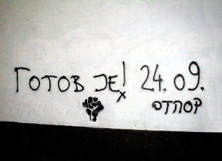 ГОТОВ ЈЕ! 24.09.
ОТПОР